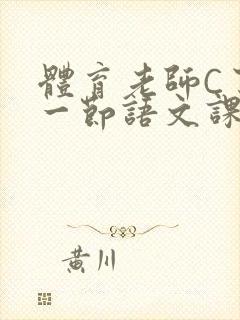 體育老師C
一節語文課
黃川